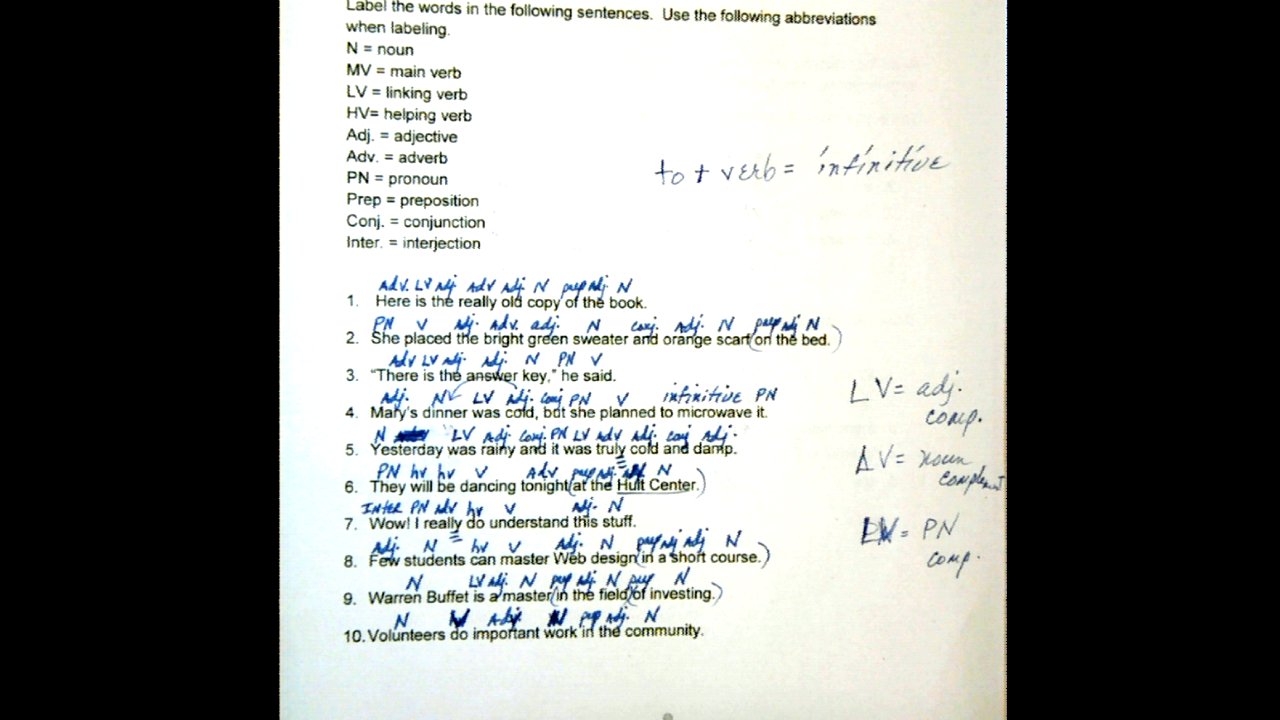 Label the words in the following sentences. Use the following abbreviations
when labeling.
N = noun
MV = main verb
LV = linking verb
HV= helping verb
Adj. = adjective
Adv. = adverb
PN = pronoun
Prep = preposition
Conj. = conjunction
Inter. = interjection
to + verb = infinitive
Adv. LV adj Adv adj N prep adj N
1. Here is the really old copy of the book.
PN V Adj. Adv. adj. N conj. Adj. N prep adj N
2. She placed the bright green sweater and orange scarf (on the bed.)
Adv LV adj. Adj. N PN V
3. "There is the answer key," he said.
Adj. N LV Adj. conj PN V infinitive PN
4. Mary's dinner was cold, but she planned to microwave it.
N LV Adj conj. PN LV adv adj. conj adj.
5. Yesterday was rainy and it was truly cold and damp.
PN hv hv V Adv prep adj. N
6. They will be dancing tonight (at the Hult Center.)
INTER PN adv hv V adj. N
7. Wow! I really do understand this stuff.
Adj. N hv V Adj. N prep adj adj N
8. Few students can master Web design (in a short course.)
N LV adj. N prep adj. N prep N
9. Warren Buffet is a master (in the field) (of investing.)
N V Adj N prep adj. N
10. Volunteers do important work in the community.
LV = adj.
comp.
LV = noun
complement
LV = PN
comp.